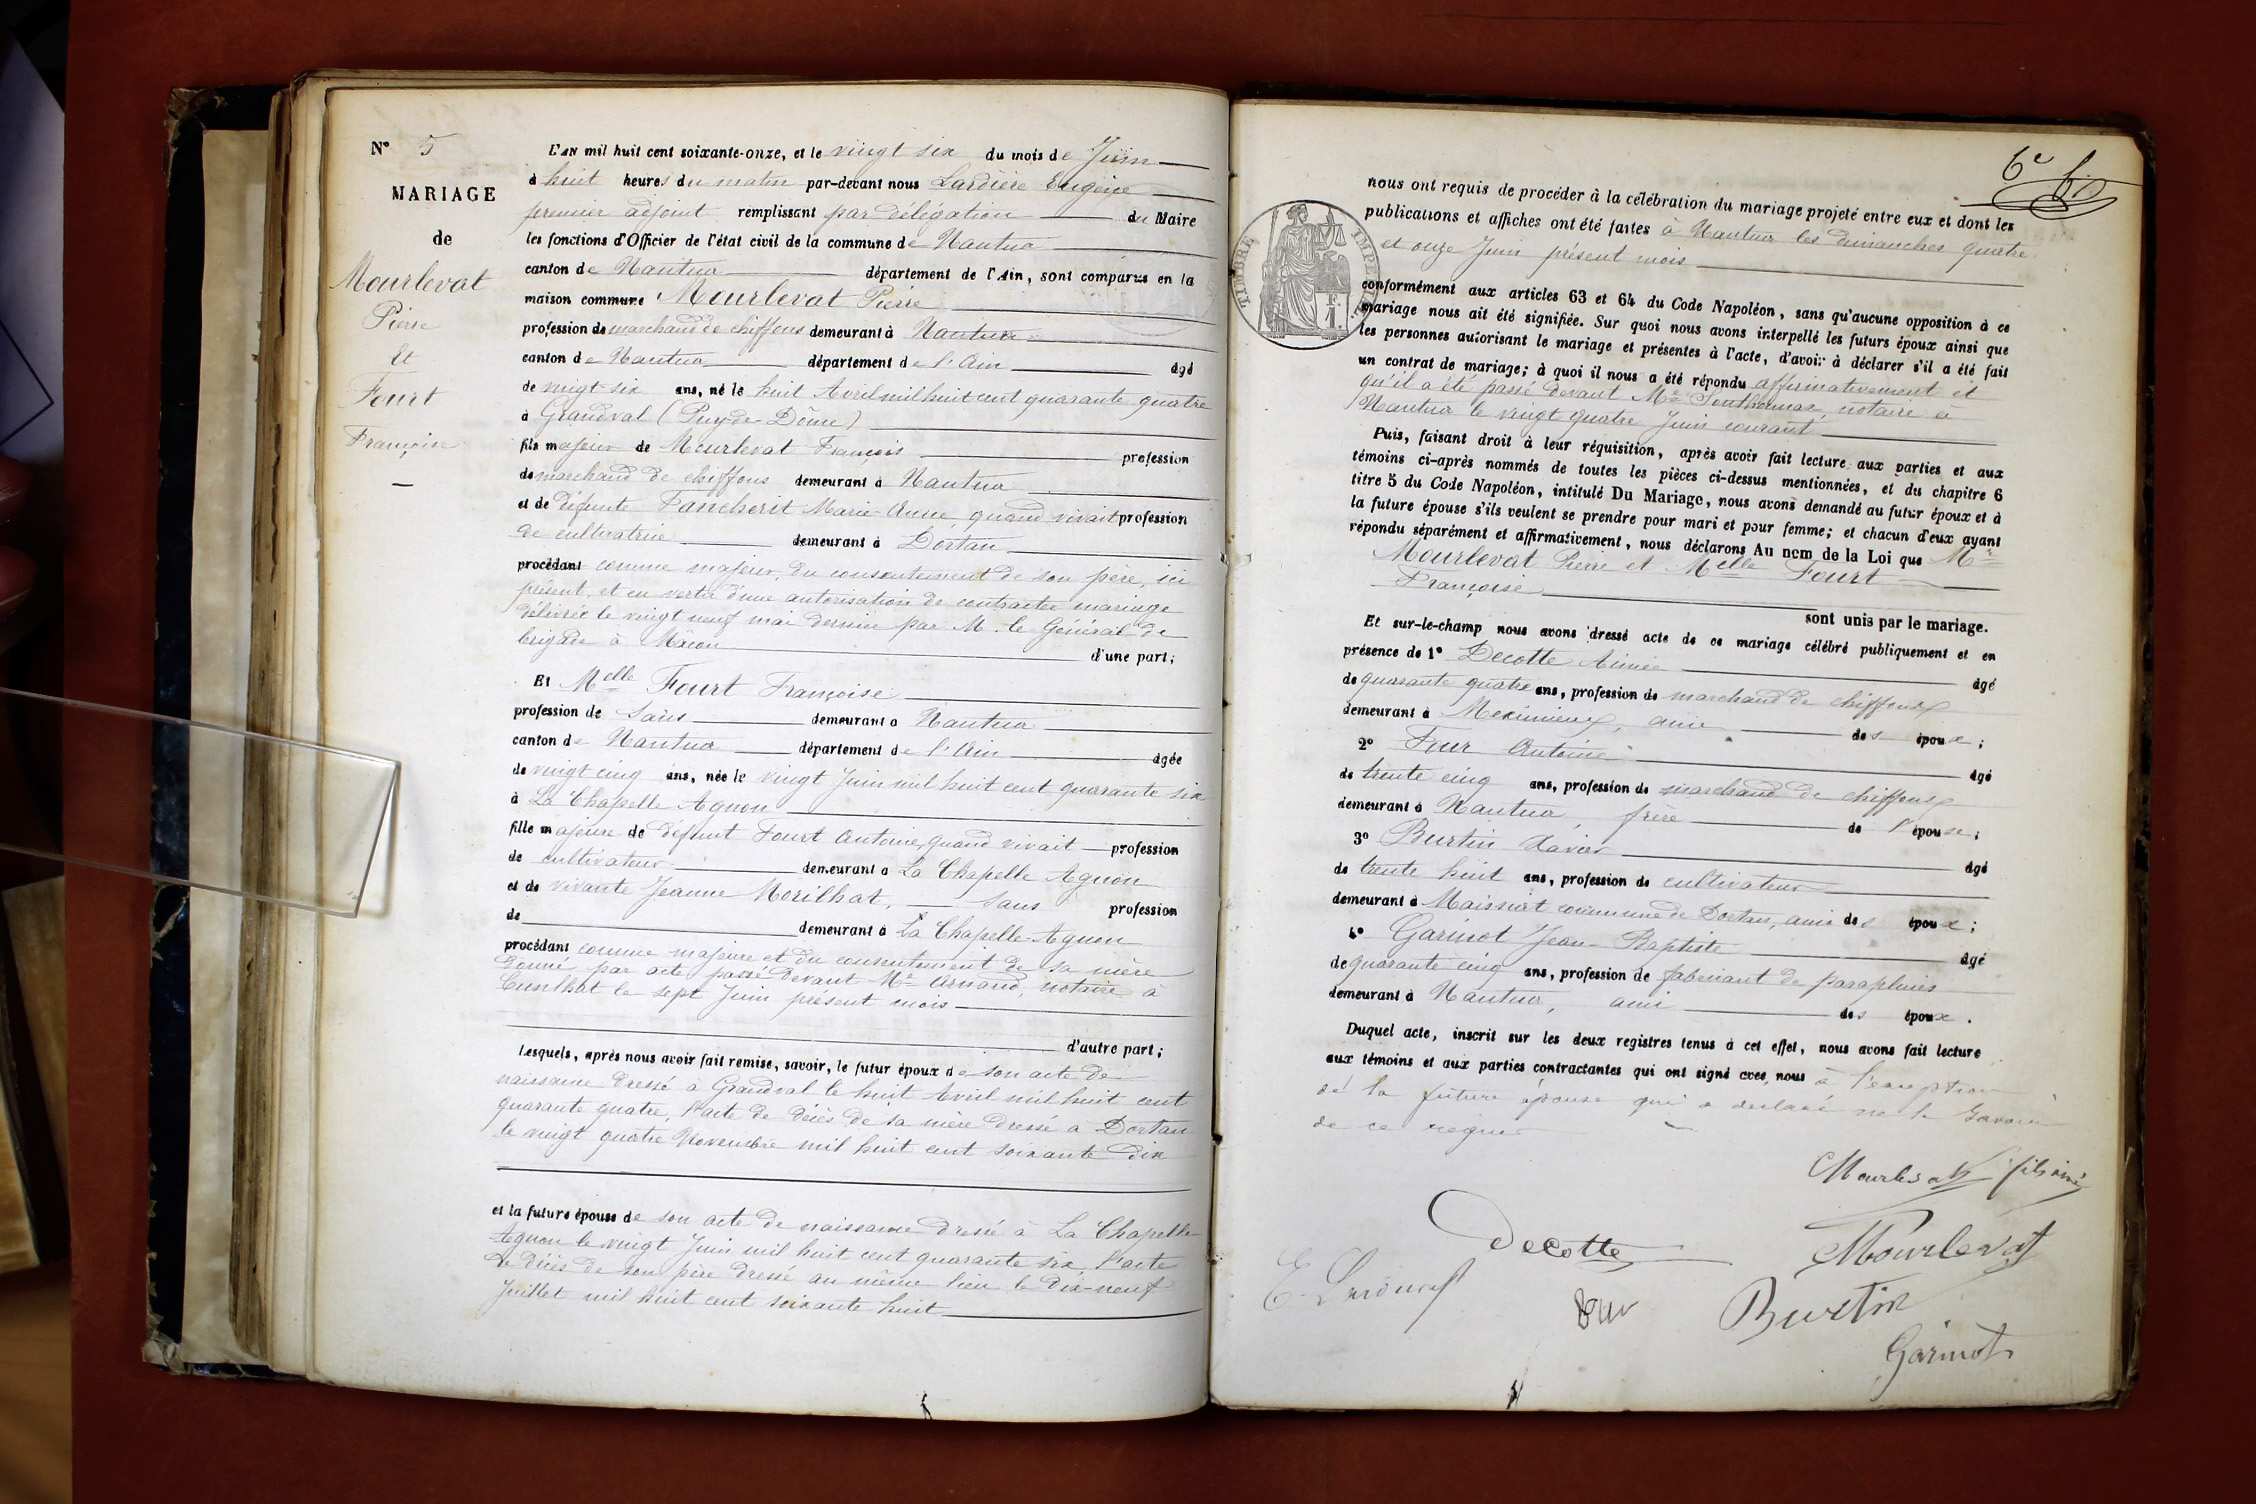 N° 5
MARIAGE
de
Mourlevat
Pierre
Et
Fourt
Françoise
L'AN mil huit cent soixante-onze, et le vingt six du mois de Juin
à huit heures du matin par-devant nous Lardière Eugène
premier adjoint remplissant par délégation du Maire
les fonctions d'Officier de l'état civil de la commune de Nantua
canton de Nantua département de l'Ain, sont comparus en la
maison commune Mourlevat Pierre
profession de marchand de chiffons demeurant à Nantua
canton de Nantua département de l'Ain âgé
de vingt six ans, né le huit Avril mil huit cent quarante quatre
à Grandval (Puy-de-Dôme)
fils majeur de Mourlevat François profession
de marchand de chiffons demeurant à Nantua
et de défunte Fancherit Marie Anne quand vivait profession
de cultivatrice demeurant à Dortan
procédant comme majeur, du consentement de son père, ici
présent, et en vertu d'une autorisation de contracter mariage
délivrée le vingt neuf mai dernier par M. le Général de
brigade à Mâcon d'une part;
Et Melle Fourt Françoise
profession de Sans demeurant à Nantua
canton de Nantua département de l'Ain âgée
de vingt cinq ans, née le vingt Juin mil huit cent quarante six
à La Chapelle Agnon
fille majeure de défunt Fourt Antoine, quand vivait profession
de cultivateur demeurant à La Chapelle Agnon
et de vivante Jeanne Morilhat, Sans profession
de demeurant à La Chapelle-Agnon
procédant comme majeure et du consentement de sa mère
donné par acte passé devant Me Arnaud, notaire à
Cunlhat le sept Juin présent mois
d'autre part;
Lesquels, après nous avoir fait remise, savoir, le futur époux de son acte de
naissance dressé à Grandval le huit Avril mil huit cent
quarante quatre, l'acte de décès de sa mère dressé à Dortan
le vingt quatre Novembre mil huit cent soixante dix
et la future épouse de son acte de naissance dressé à La Chapelle
Agnon le vingt Juin mil huit cent quarante six, l'acte
de décès de son père dressé au même lieu le dix-neuf
Juillet mil huit cent soixante huit
6e
TIMBRE IMPÉRIAL
nous ont requis de procéder à la célébration du mariage projeté entre eux et dont les
publications et affiches ont été faites à Nantua les dimanches quatre
et onze Juin présent mois
conformément aux articles 63 et 64 du Code Napoléon, sans qu'aucune opposition à ce
mariage nous ait été signifiée. Sur quoi nous avons interpellé les futurs époux ainsi que
les personnes autorisant le mariage et présentes à l'acte, d'avoir à déclarer s'il a été fait
un contrat de mariage; à quoi il nous a été répondu affirmativement et
qu'il a été passé devant Me Southonnax, notaire à
Nantua le vingt quatre Juin courant
Puis, faisant droit à leur réquisition, après avoir fait lecture aux parties et aux
témoins ci-après nommés de toutes les pièces ci-dessus mentionnées, et du chapitre 6
titre 5 du Code Napoléon, intitulé Du Mariage, nous avons demandé au futur époux et à
la future épouse s'ils veulent se prendre pour mari et pour femme; et chacun d'eux ayant
répondu séparément et affirmativement, nous déclarons Au nom de la Loi que Mr
Mourlevat Pierre et Melle Fourt
Françoise
sont unis par le mariage.
Et sur-le-champ nous avons dressé acte de ce mariage célébré publiquement et en
présence de 1° Decotte Aimée âgé
de quarante quatre ans, profession de marchand de chiffons
demeurant à Meximieux, ami des époux;
2° Four Antoine âgé
de trente cinq ans, profession de marchand de chiffons
demeurant à Nantua, frère de l'épouse;
3° Burtin Xavier âgé
de trente huit ans, profession de cultivateur
demeurant à Maissiat commune de Dortan, ami des époux;
4° Garinot Jean-Baptiste âgé
de quarante cinq ans, profession de fabricant de parapluies
demeurant à Nantua, ami des époux.
Duquel acte, inscrit sur les deux registres tenus à cet effet, nous avons fait lecture
aux témoins et aux parties contractantes qui ont signé avec nous à l'exception
de la future épouse qui a declaré ne le savoir
de ce requise
Mourlevat fils ainé
Decotte
Mourlevat
Burtin
Garinot